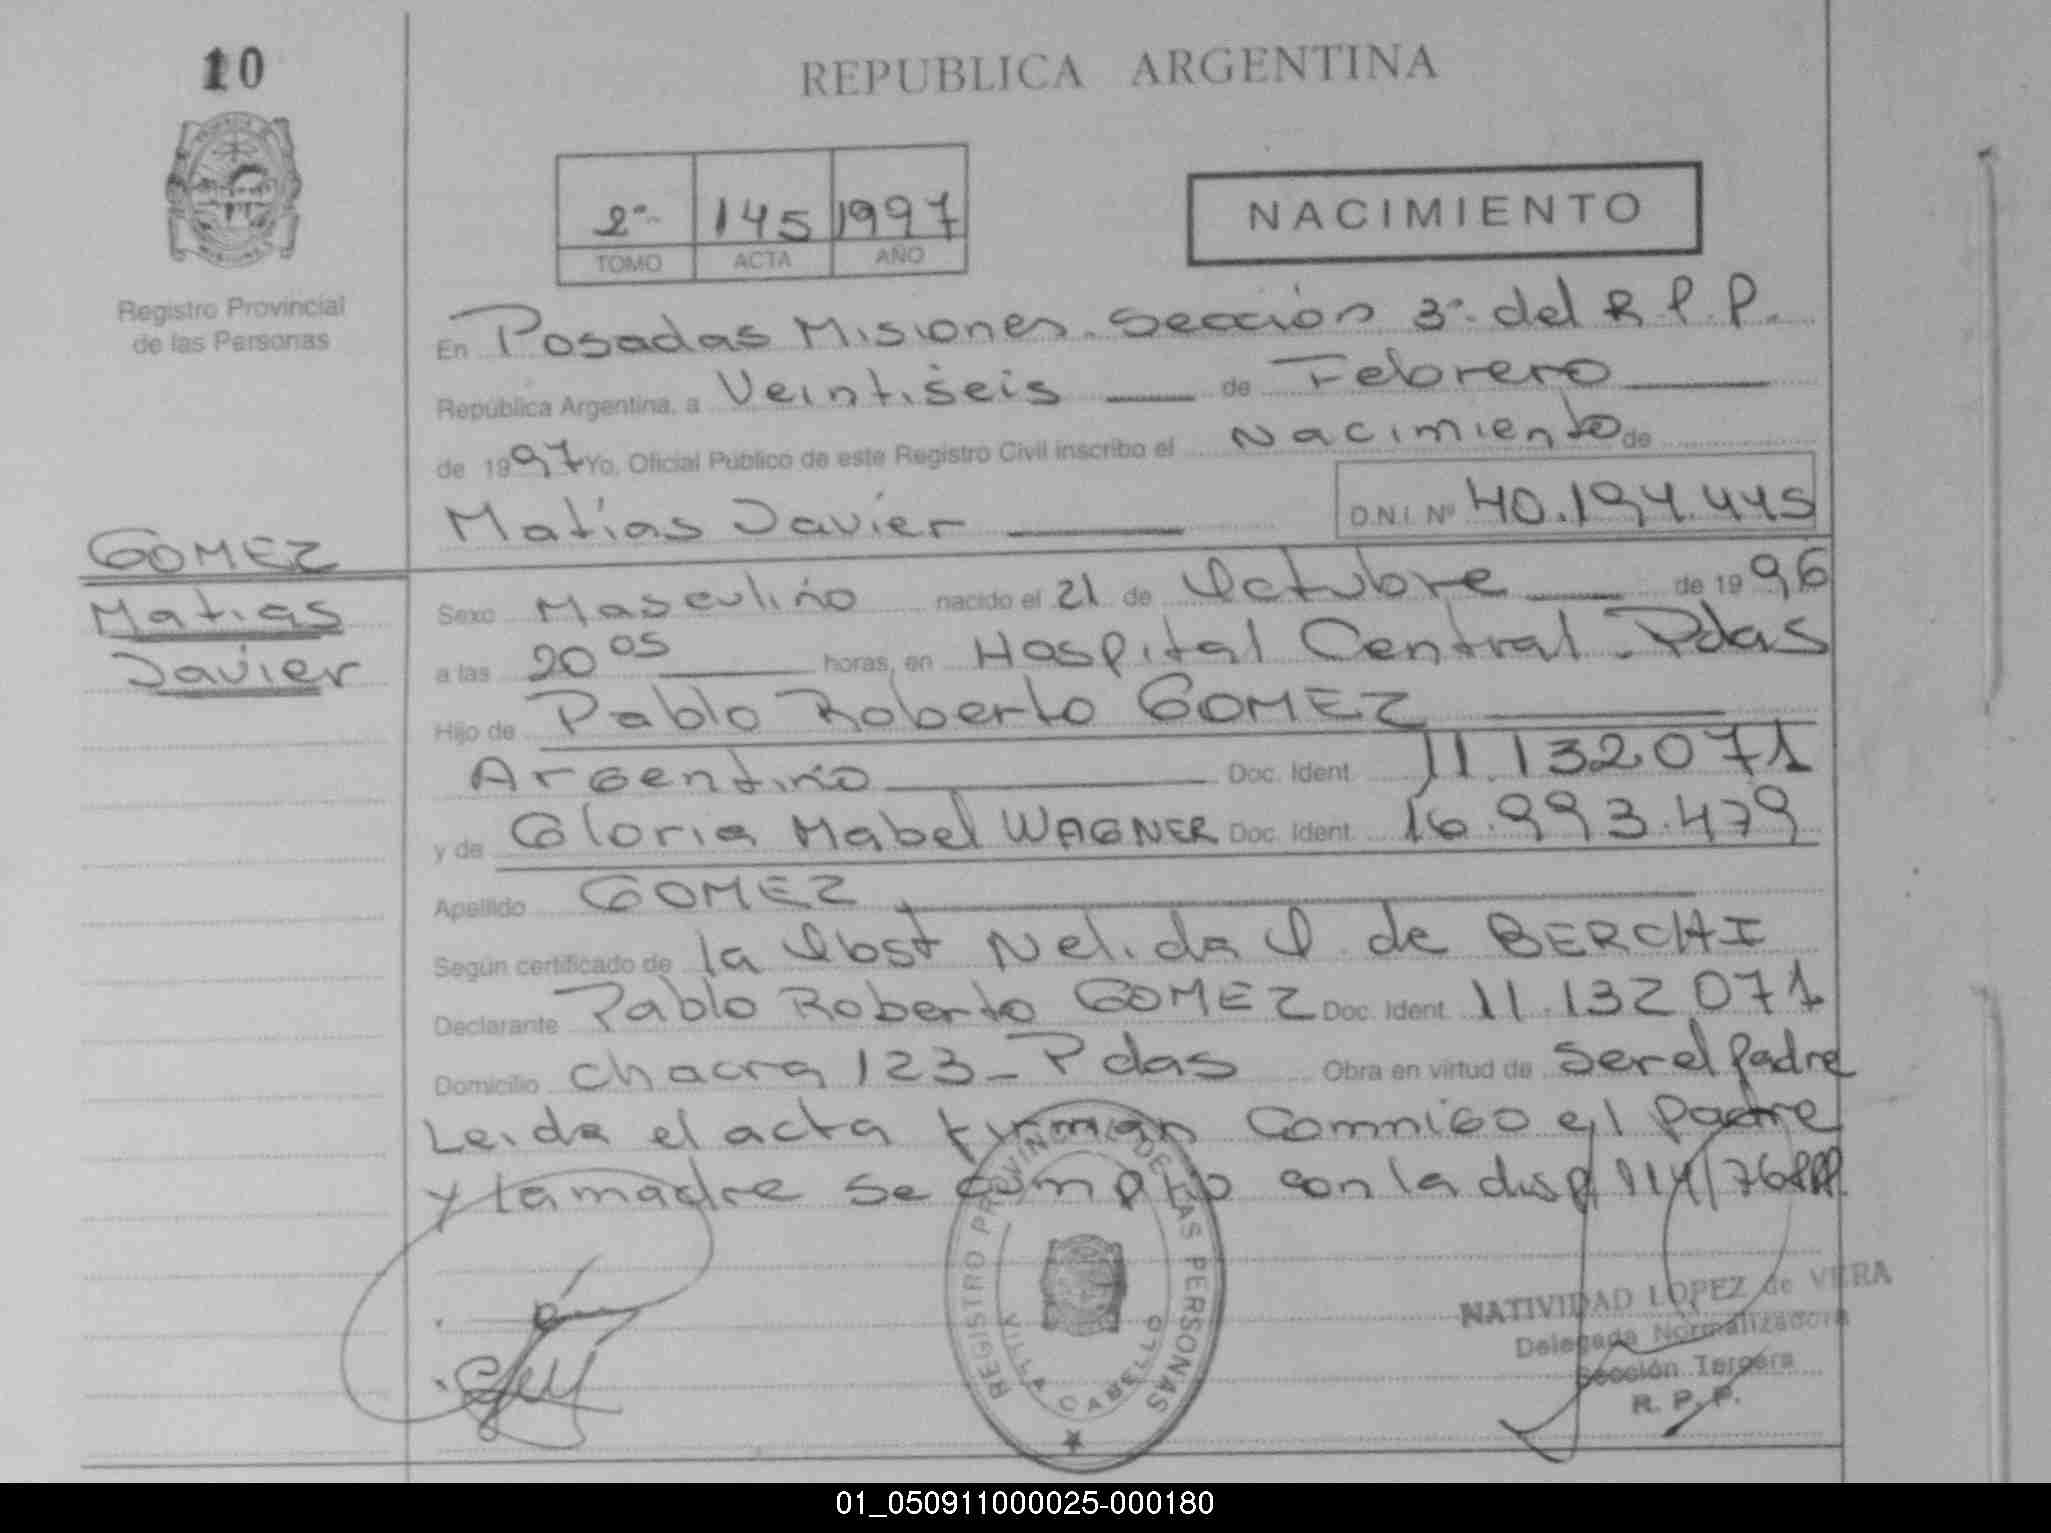 10
REPUBLICA ARGENTINA
2º 145 1997
TOMO ACTA AÑO
NACIMIENTO
Registro Provincial
de las Personas
En Posadas Misiones. Sección 3º. del R.P.P.
República Argentina, a Veintiseis de Febrero
de 1997 Yo, Oficial Público de este Registro Civil inscribo el Nacimiento de
Matías Javier D.N.I. Nº 40.194.445
GOMEZ
Matias
Javier
Sexo Masculino nacido el 21 de Octubre de 1996
a las 20 05 horas, en Hospital Central - Pdas
Hijo de Pablo Roberto GOMEZ
Argentino Doc. Ident. 11.132.071
y de Gloria Mabel WAGNER Doc. Ident. 16.993.479
Apellido GOMEZ
Según certificado de la Obst Nelida O. de BERCHI
Declarante Pablo Roberto GOMEZ Doc. Ident. 11.132.071
Domicilio Chacra 123 - Pdas Obra en virtud de ser el padre
Leida el acta firman conmigo el padre
y la madre se cumplio con la disp 114/76
REGISTRO PROVINCIAL DE LAS PERSONAS
VILLA CABELLO
NATIVIDAD LOPEZ de VERA
Delegada Normalizadora
Sección Tercera
R. P. P.
01_050911000025-000180